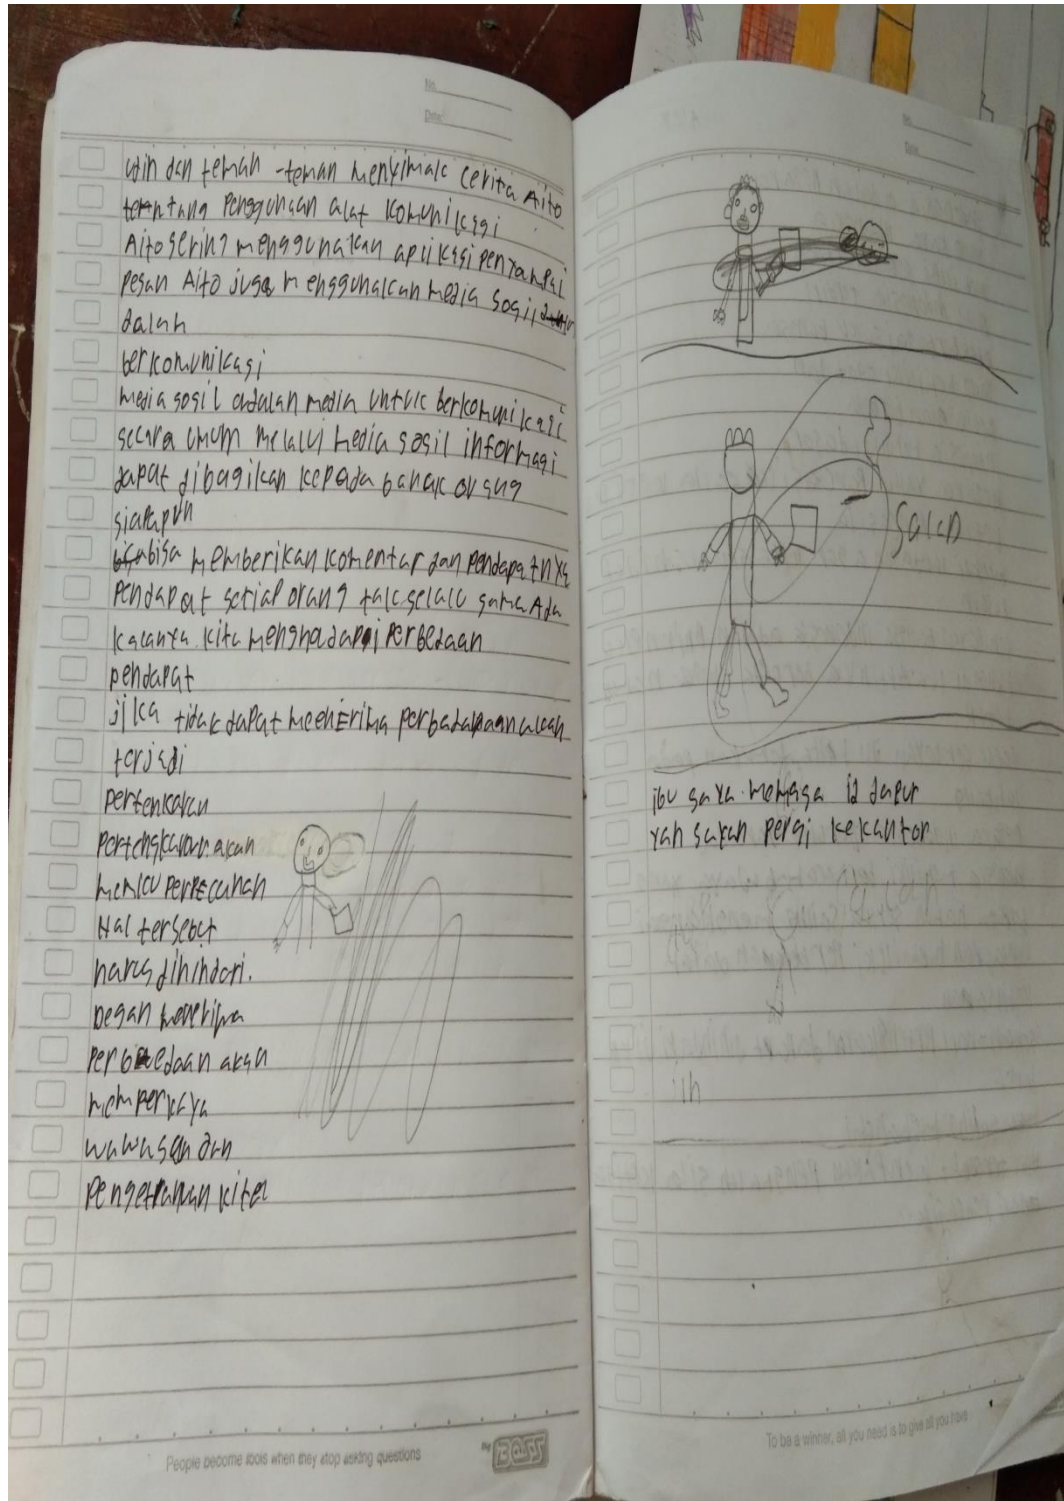 No.
Date
udin dan teman -teman menyimak cerita Aito
tentang penggunaan alat komunikasi
Aito sering menggunakan aplikasi penyampai
pesan Aito juga menggunakan media sosil
dalah
berkomunikasi
media sosil adalah media untuk berkomunikasi
secara umum melalui media sosil informasi
dapat dibagikan kepada banak orang
siapapun
bisa memberikan komentar dan pendapatnya
pendapat setiap orang tak selalu sama Ada
kalanya kita menghadapi perbedaan
pendapat
jika tidak dapat meenerima akan
terjadi
pertenkaran
pertengkaran akan
memicu perpecahan
Hal tersebut
harus dihindari.
Degan menerima
perbedaan akan
memperkaya
wawasan dan
kita
People become fools when they stop asking questions
Big BOSS
No.
Date
salah
ibu saya di dapur
pergi kekantor
To be a winner, all you need is to give all you have